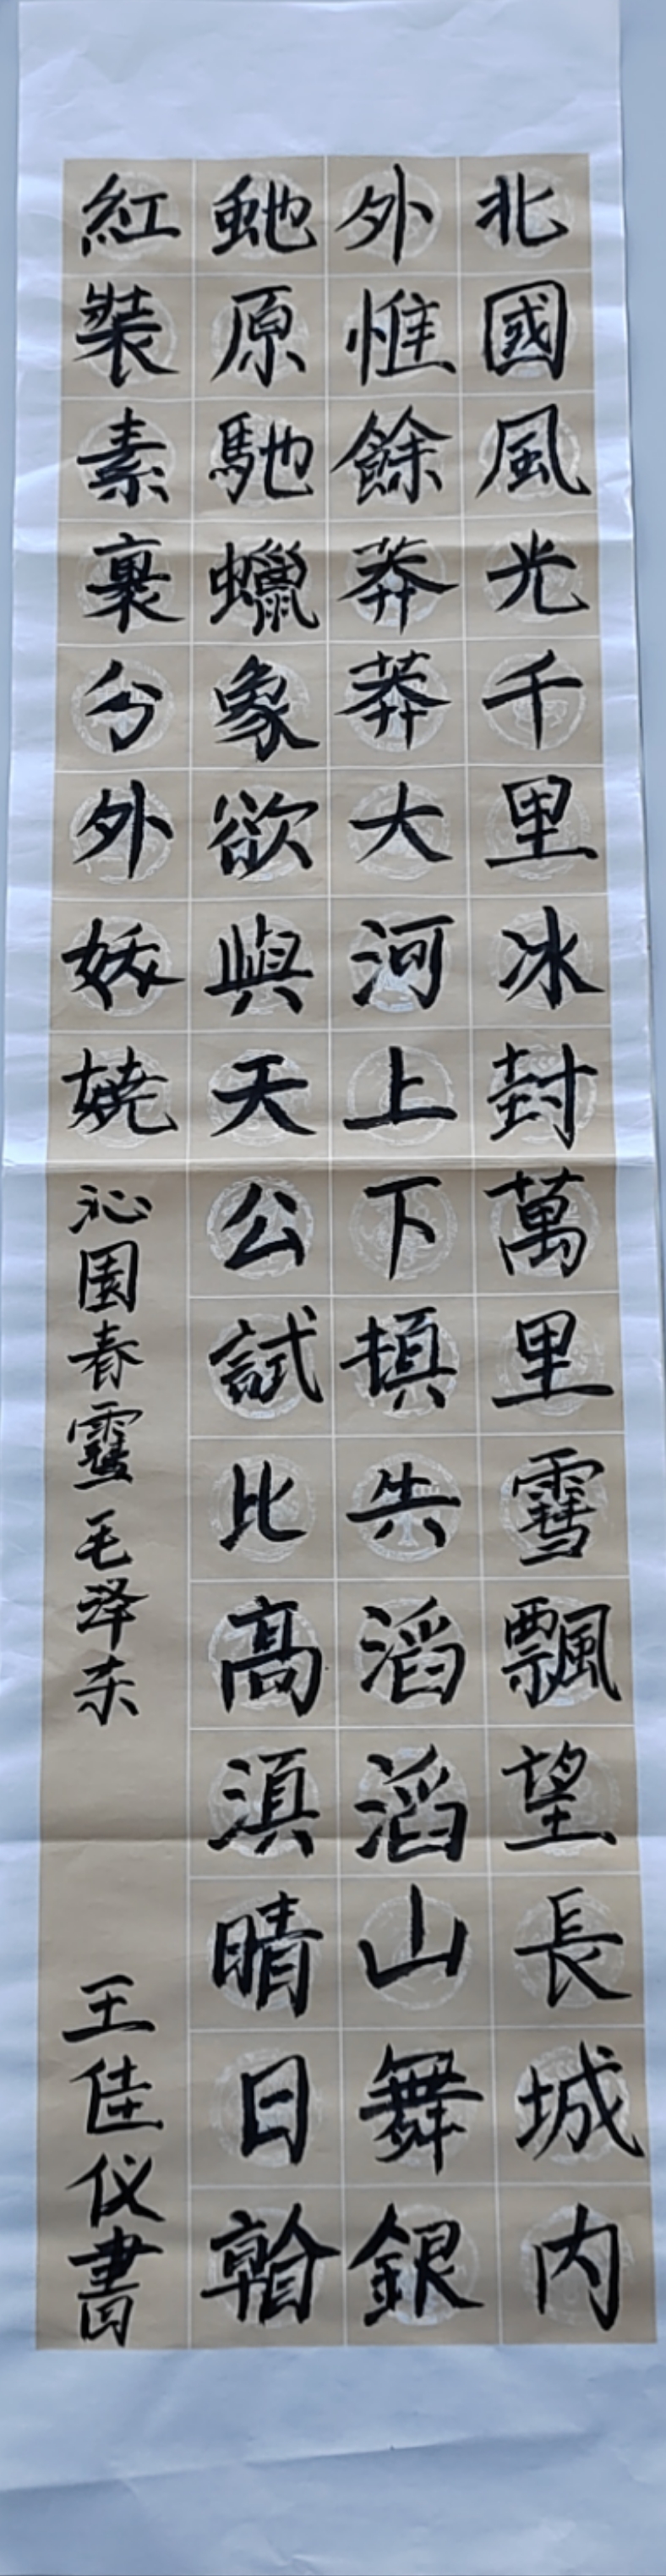 北國風光千里冰封萬里雪飄望長城内
外惟餘莽莽大河上下頓失滔滔山舞銀
虵原馳蠟象欲與天公試比高湏晴日
紅裝素裹分外妖嬈
沁園春雪 毛泽东
王佳仪書